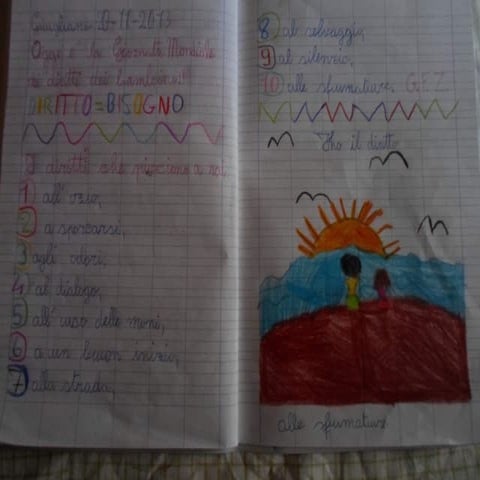 Giugliano 20-11-2013
Oggi è la Giornata Mondiale
dei diritti dei bambini!!
DIRITTO=BISOGNO
I diritti che piacciono a noi
1 all'ozio,
2 a sporcarsi,
3 agli odori,
4 al dialogo,
5 all'uso delle mani,
6 a un buon inizio,
7 alla strada,
8 al selvaggio,
9 al silenzio,
10 alle sfumature. G.F.Z.
Iho il diritto
alle sfumature